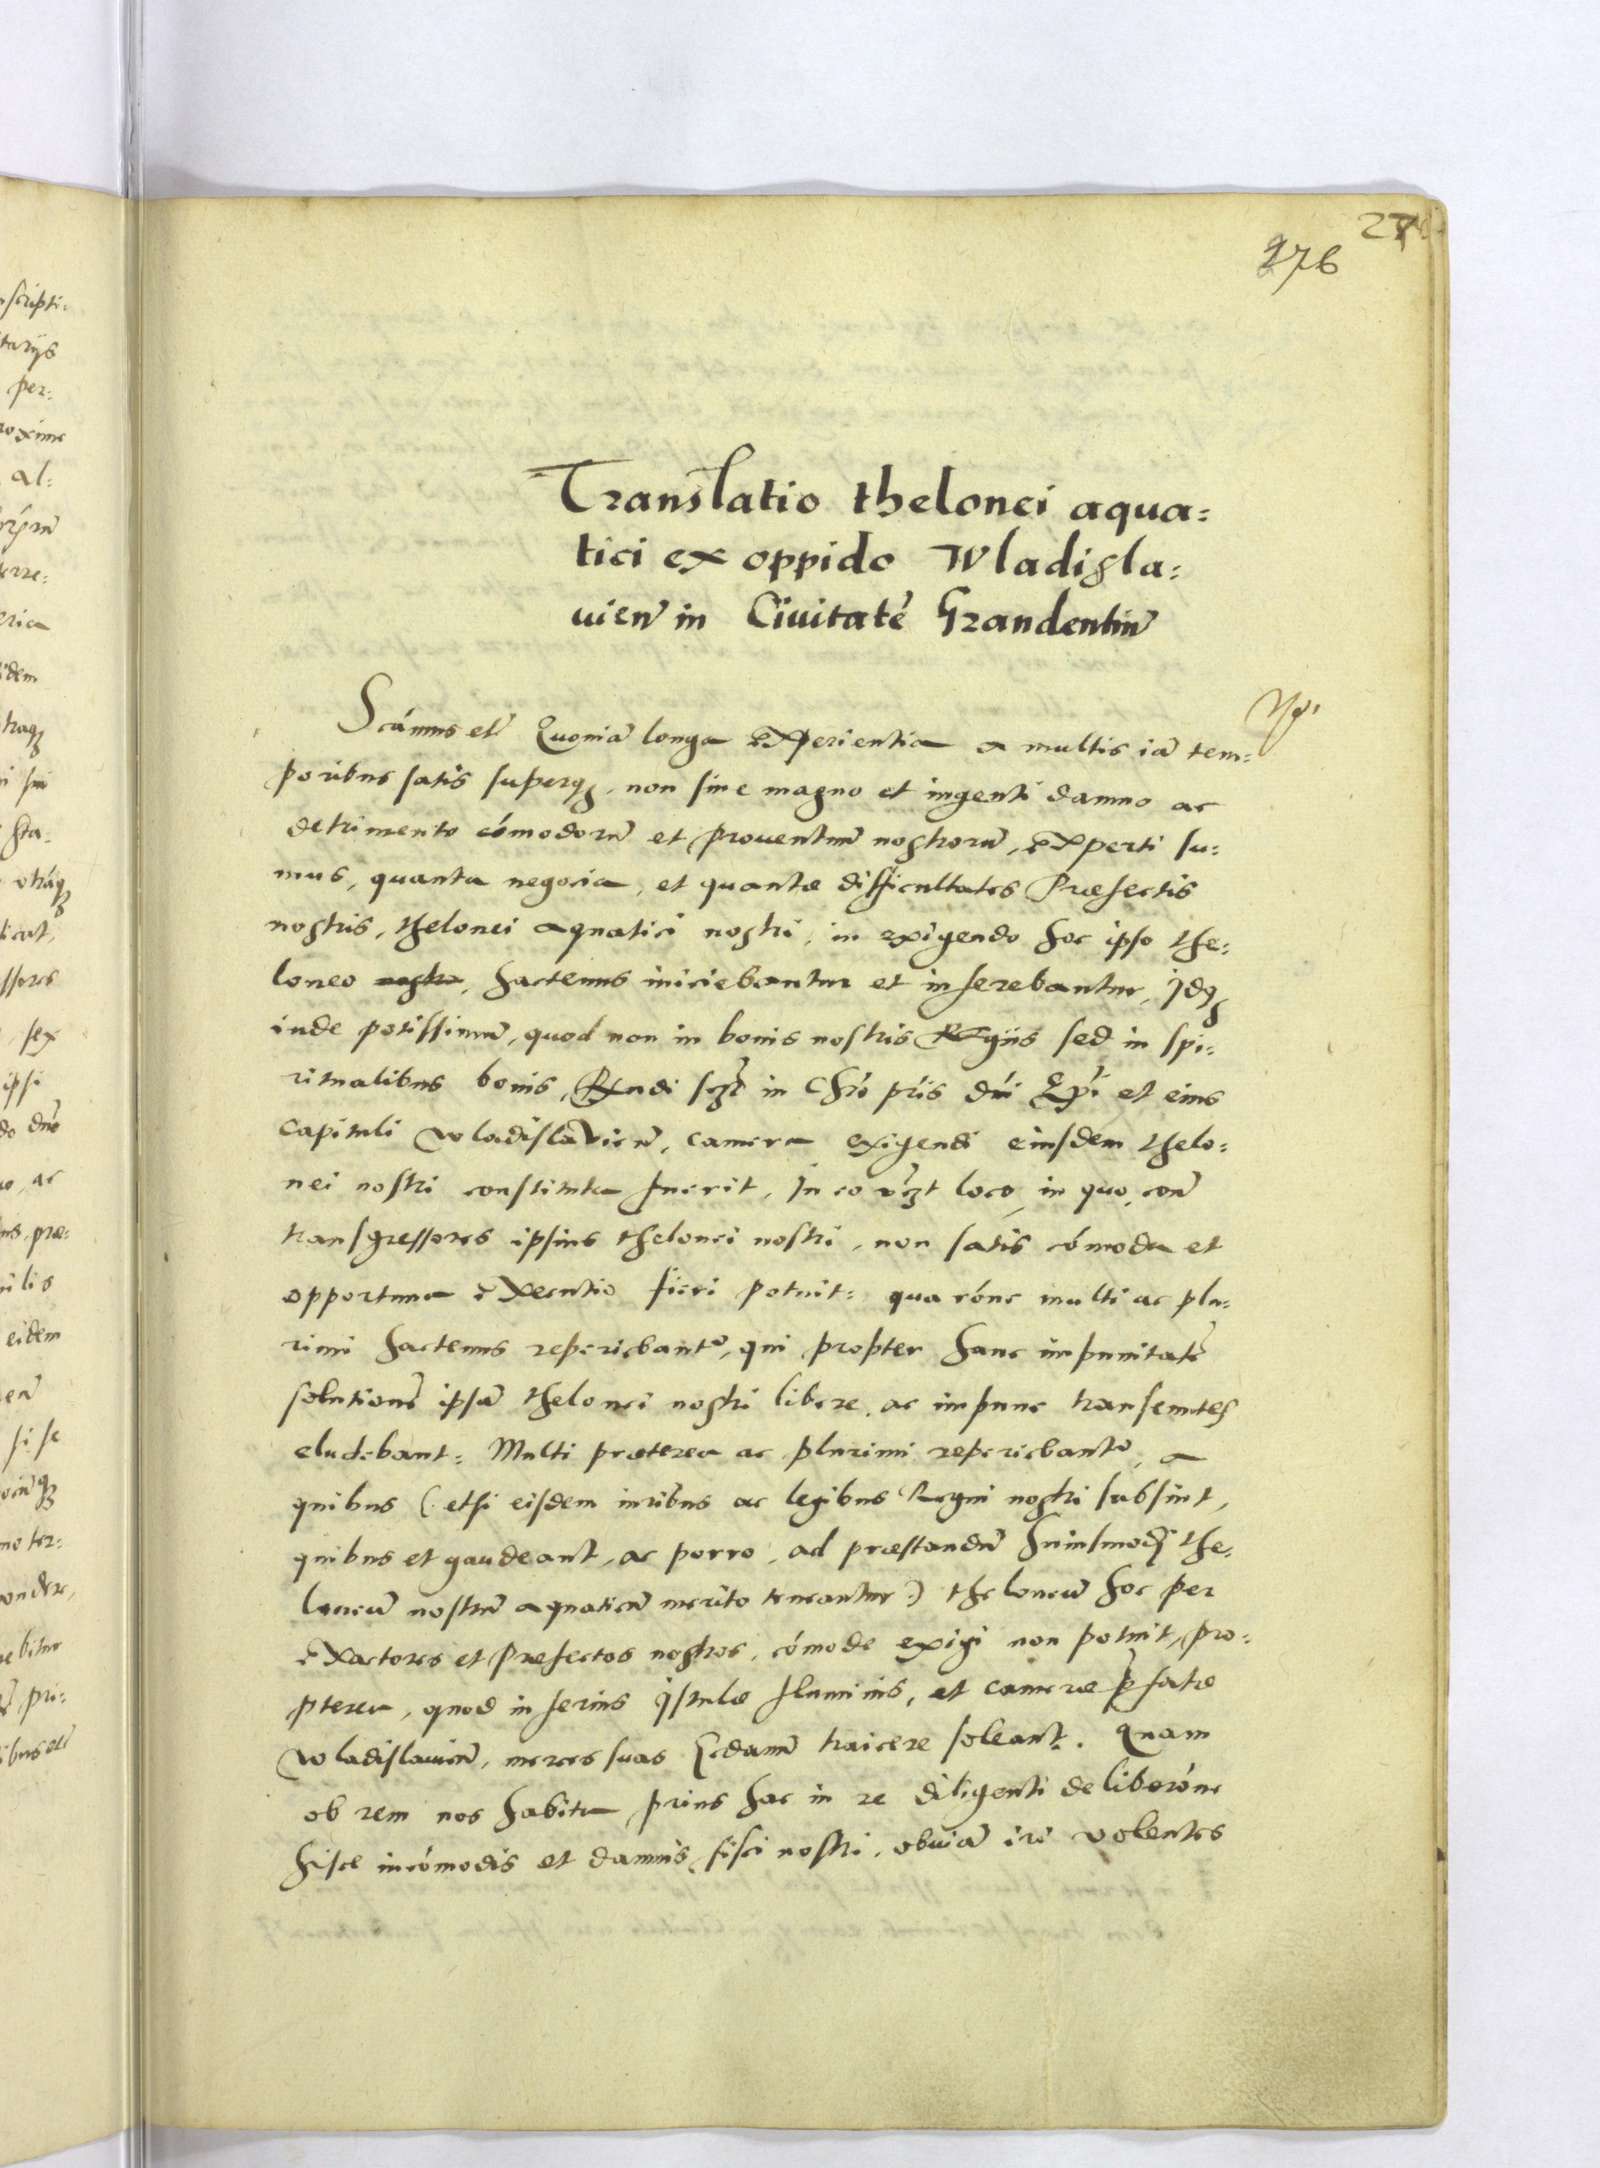 276
Translatio thelonei aqua=
tici ex oppido Wladisla=
uien̄ in Ciuitatē Grandentin̄
Scāmus etc̄ Quoniā longa experientia a multis iā tem=
poribus satis superq₃, non sine magno et ingenti damno ac
detrimento cōmodorū et prouentuū nostrorū, experti su=
mus, quanta negocia, et quantæ difficultates Præfectis
nostris, thelonei aquatici nostri, in exigendo hoc ipso the=
loneo nostro, hactenus iniciebantur et inserebantur, Idq₃
inde potissimū, quod non in bonis nostris Regiis sed in spi=
ritualibus bonis, Rndi scz̄t in Chrō pr̄is dn̄i Ep̄i et eius
Capituli Wladislavien̄, camera exigendi eiusdem thelo=
nei nostri constituta fuerit, In eo vcz̄t loco, in quo, con̄
transgressores ipsius thelonei nostri, non satis cōmoda et
opportuna executio fieri potuit: qua rōne multi ac plu=
rimi hactenus reperiebantr̄, qui propter hanc impunitatē
solutionē ipsā thelonei nostri libere, ac impune transeuntes
eludebant: Multi præterea ac plurimi reperiebantr̄, a
quibus (etsi eisdem iuribus ac legibus Regni nostri subsint,
quibus et gaudeant, ac porro, ad præstandū huiusmodj the=
loneū nostrū aquaticū merito teneantur) theloneū hoc per
exactores et Præfectos nostros, cōmode exigi non potuit, pro=
pterea, quod inferius Istulæ fluminis, et cameræ p̄fatæ
Wladislauien̄, merces suas Gedanū traicere soleant. Quam
ob rem nos habita prius hac in re diligenti deliberōne
hisce incōmodis et damnis fisci nostri, obuiā iri volentes